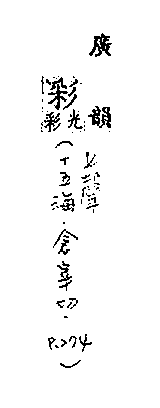 廣韻
彩
彩光
上聲
(十五海.倉宰切.
P.274)